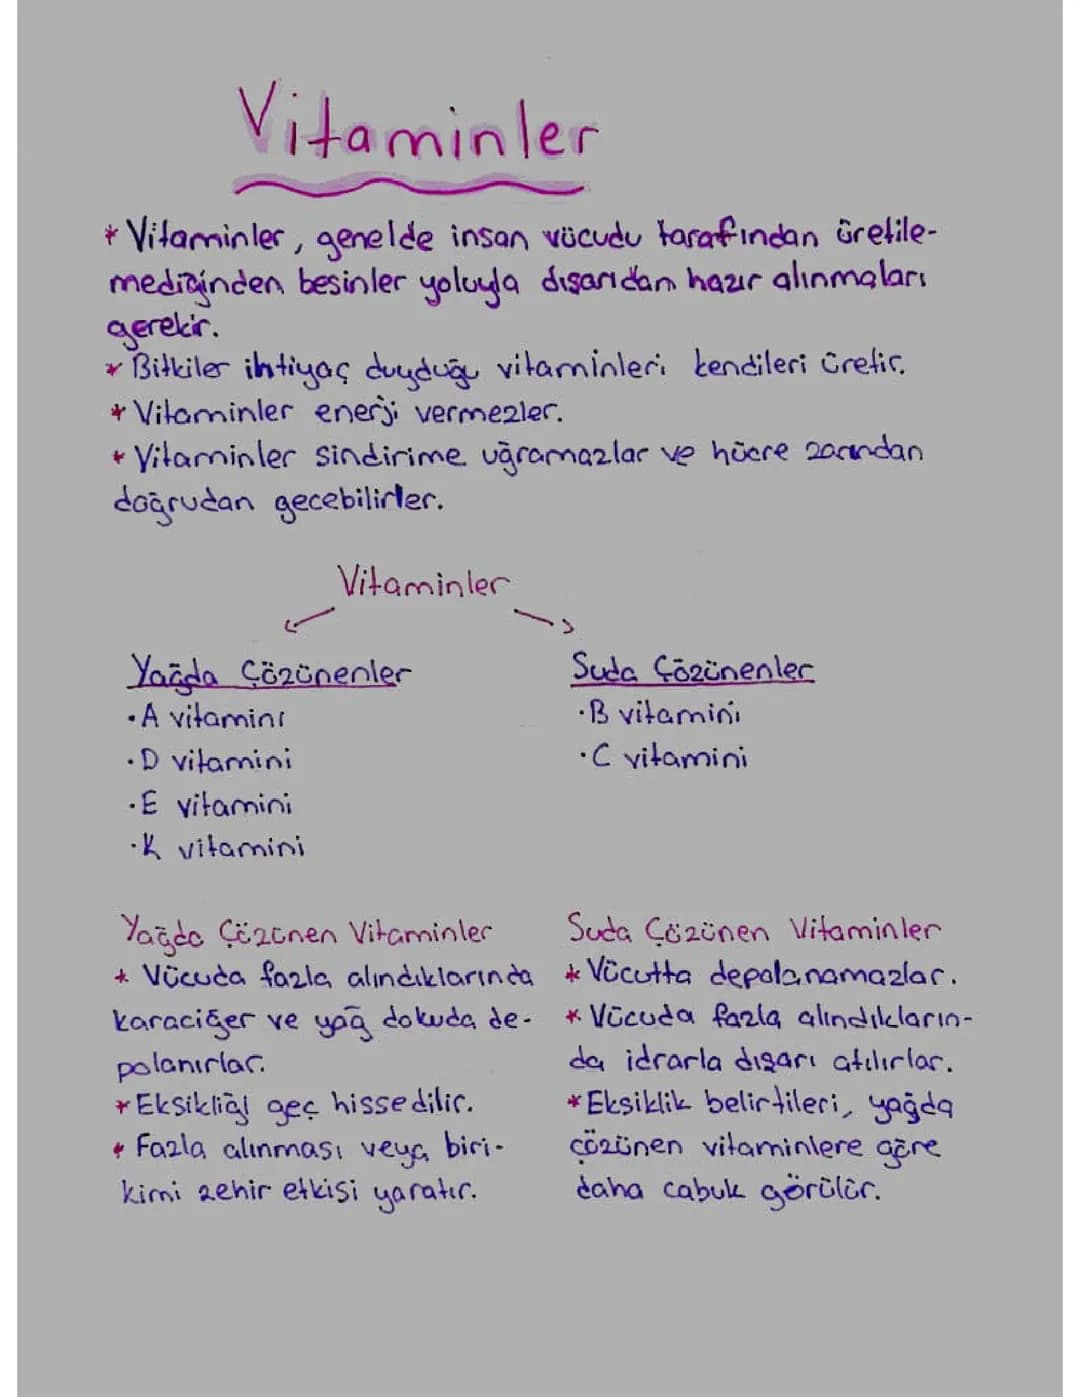 Vitaminler
* Vitaminler, genelde insan vücudu tarafından üretile-
mediğinden besinler yoluyla dışarıdan hazır alınmaları
gerekir.
* Bitkiler ihtiyaç duyduğu vitaminleri kendileri üretir.
* Vitaminler enerji vermezler.
* Vitaminler sindirime uğramazlar ve hücre zarından
doğrudan gecebilirler.
Vitaminler
Yağda Çözünenler
• A vitamini
• D vitamini
• E vitamini
• K vitamini
Suda Çözünenler
• B vitamini
• C vitamini
Yağda Çözünen Vitaminler
* Vücuda fazla alındıklarında
karaciğer ve yağ dokuda de-
polanırlar.
* Eksikliği geç hissedilir.
* Fazla alınması veya biri-
kimi zehir etkisi yaratır.
Suda Çözünen Vitaminler
* Vücutta depolanamazlar.
* Vücuda fazla alındıkların-
da idrarla dışarı atılırlar.
* Eksiklik belirtileri, yağda
çözünen vitaminlere göre
daha cabuk görülür.